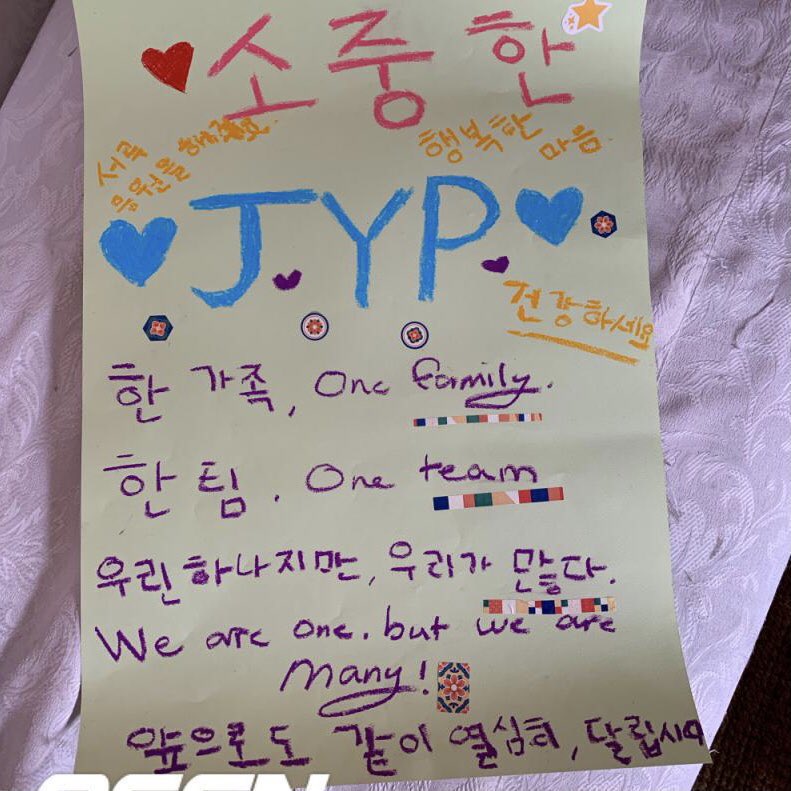 소중한
서로
응원을
행복한 마음
J.Y.P.
건강하세요
한 가족, One family.
한 팀. One team
우린 하나지만, 우리가 많다.
We are one. but we are
Many!
앞으로도 같이 열심히, 달립시다
OSEN